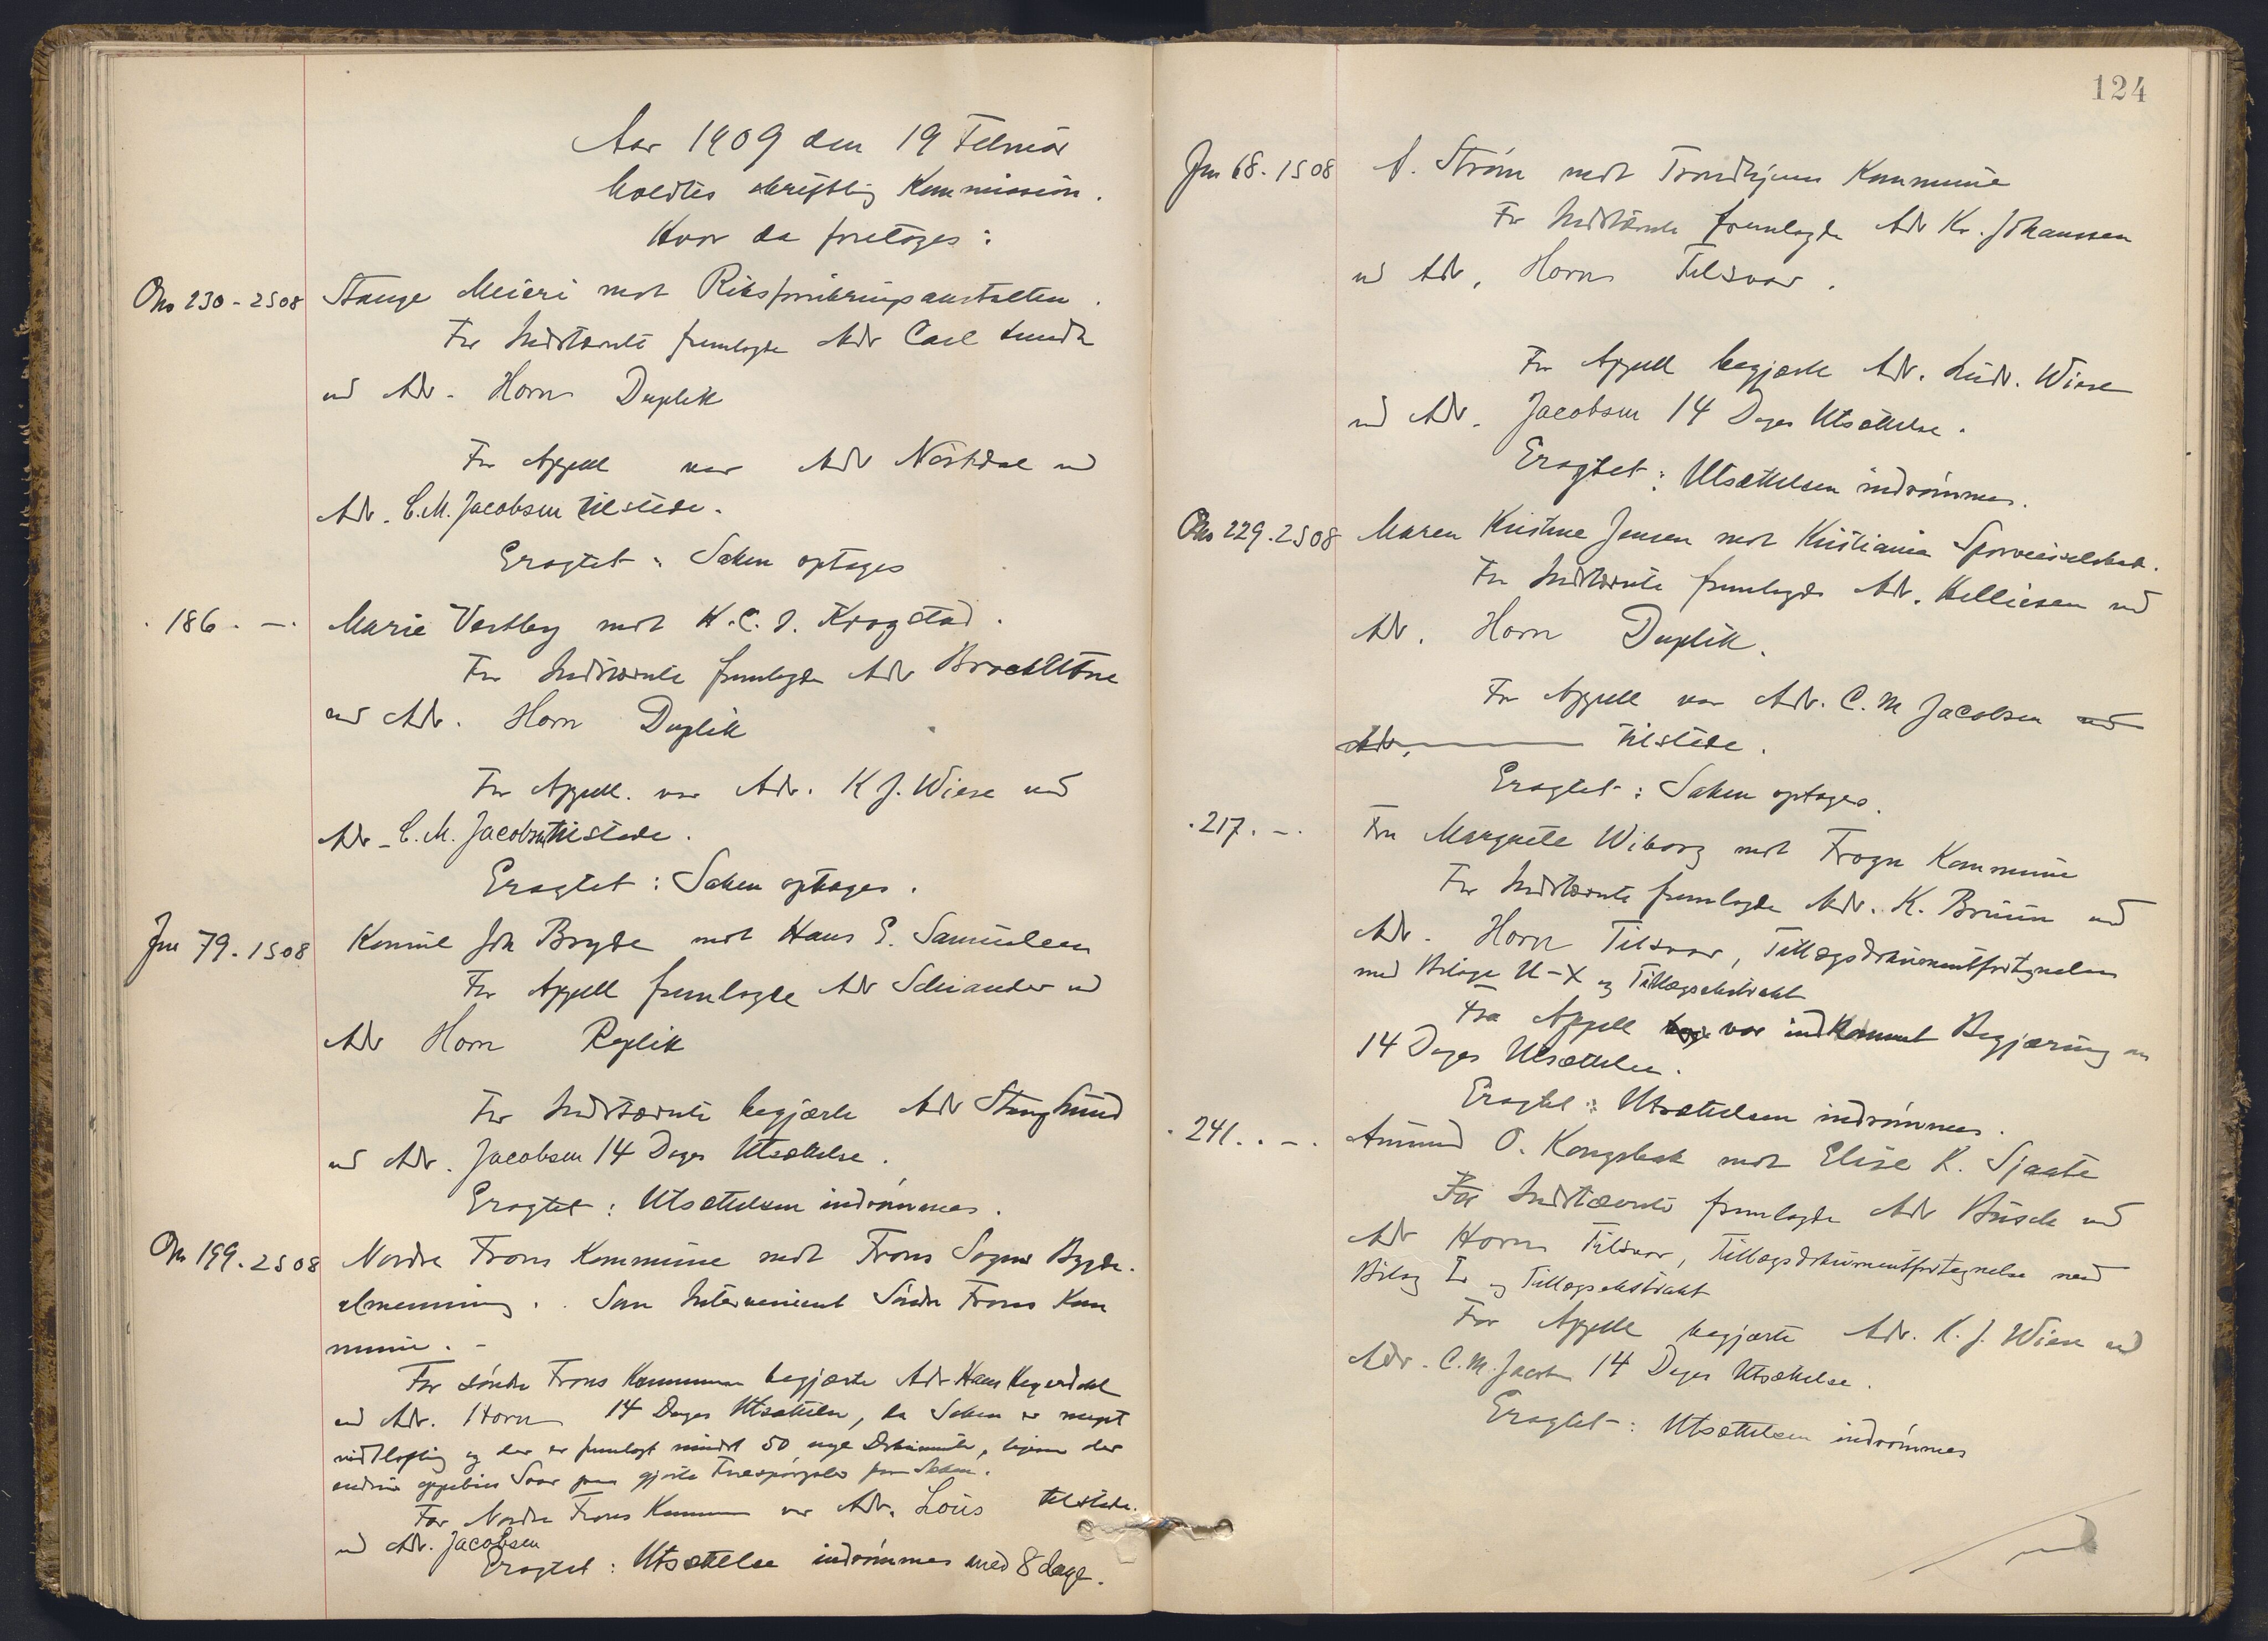 Aar 1909 den 19 Februar
holdtes skriftlig Kommission.
Hvor da foretages:
Ono 230 - 2 S 08 Stange Meieri mot Riksforsikringsanstalten.
For Indstævnte fremlagde Adv Carl Lundh
ved Adv. Horn Duplik
For Appell var Adv Nørstdal ved
Adv. C.M. Jacobsen tilstede.
Eragtet: Saken optages
. 186 . — . Marie Vestby mot K.C.J. Krogstad.
For Indstævnte fremlagde Adv
ved Adv. Horn Duplik
For Appell. var Adv. K J. Wiese ved
Adv. C.M. Jacobsen tilstede.
Eragtet: Saken optages.
Jnr 79. 1 S 08 Konsul Joh Bryde mot Hans E. Samuelsen
For Appell fremlagde Adv Schiander ved
Adv Horn Replik
For Indstævnte begjærte Adv Stang Lund
ved Adv. Jacobsen 14 Dages Utsættelse.
Eragtet: Utsættelsen indrømmes.
Ono 199. 2 S 08 Nordre Frons Kommune mot Frons Sogns Bygde-
almenning. Som Intervenient Søndre Frons Kom
mune. -
For søndre Frons Kommune begjærte Adv Hans
ved Adv. Horn 14 Dages Utsættelse, da Saken er meget
vidtløftig og der er fremlagt mindst 50 nye Dokumenter, ligesom der
endnu Svar paa gjorte Forespørgsler Saken.
For Nordre Frons Kommune var Adv. Lous tilstede.
ved Adv. Jacobsen
Eragtet: Utsættelse indrømmes med 8 dage.
124
Jnr 68. 1 S 08 A. Strøm mot Trondhjems Kommune
For Indstævnte fremlagde Adv Kr. Johanssen
ved Adv. Horn Tilsvar.
For Appell begjærte Adv. Ludv. Wiese
ved Adv. Jacobsen 14 Dages Utsættelse.
Eragtet: Utsættelsen indrømmes.
Ono 229. 2 S 08 Maren Kristine Jensen mot Kristiania Sporveisselskab.
For Indstævnte fremlagde Adv. Kelliesen ved
Adv. Horn Duplik.
For Appell var Adv. C. M Jacobsen ved
Adv. tilstede.
Eragtet: Saken optages.
. 217. - . Fru Margrete Wiborg mot Frogn Kommune
For Indstævnte fremlagde Adv. K. Bruun ved
Adv. Horn Tilsvar, Tillægsdokumentfortegnelse
med Bilage U-X og Tillægsekstrakt
Fra Appell var indkommet Begjæring om
14 Dages Utsættelse.
Eragtet: Utsættelsen indrømmes.
. 241. . - . Amund O. Kongsbak mot Elise K. Sjaate
For Indstævnte fremlagde Adv Busch ved
Adv Horn Tilsvar, Tillægsdokumentfortegnelse med
Bilag og Tillægsekstrakt
For Appell begjærte Adv. K. J. Wiese ved
Adv. C.M. Jacobsen 14 Dages Utsættelse.
Eragtet: Utsættelsen indrømmes